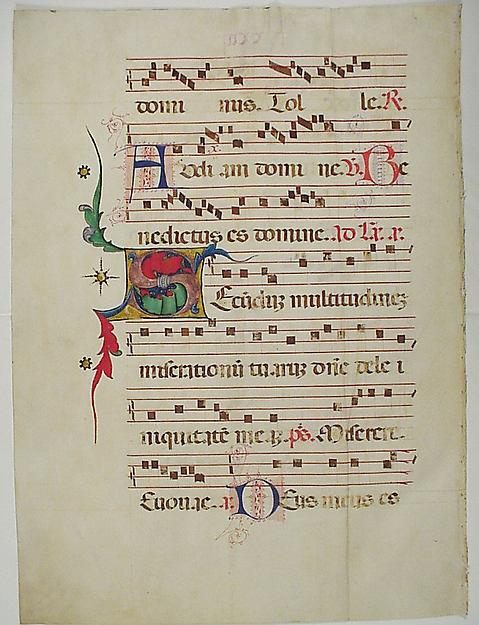 domi nus. Tol le. R.
Audi am domi ne. V. Be
nedictus es domine. Ad
Secundum multitudinem
miserationum tuarum dne dele i
niquitatem me ps. Miserere.
Euouae. Deus meus es